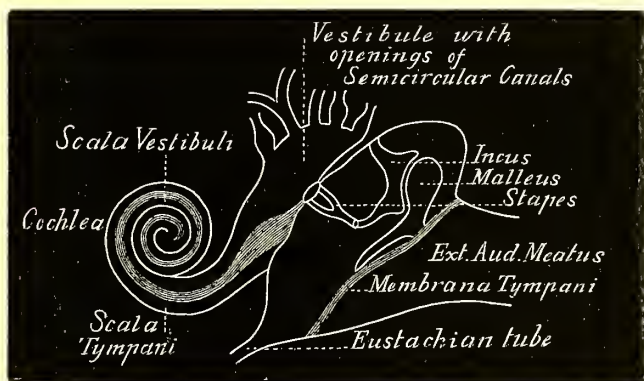 Vestibule with
openings of
Semicircular Canals
Scala Vestibuli
Incus
Malleus
Stapes
Cochlea
Ext. Aud. Meatus
Membrana Tympani
Scala
Tympani
Eustachian tube